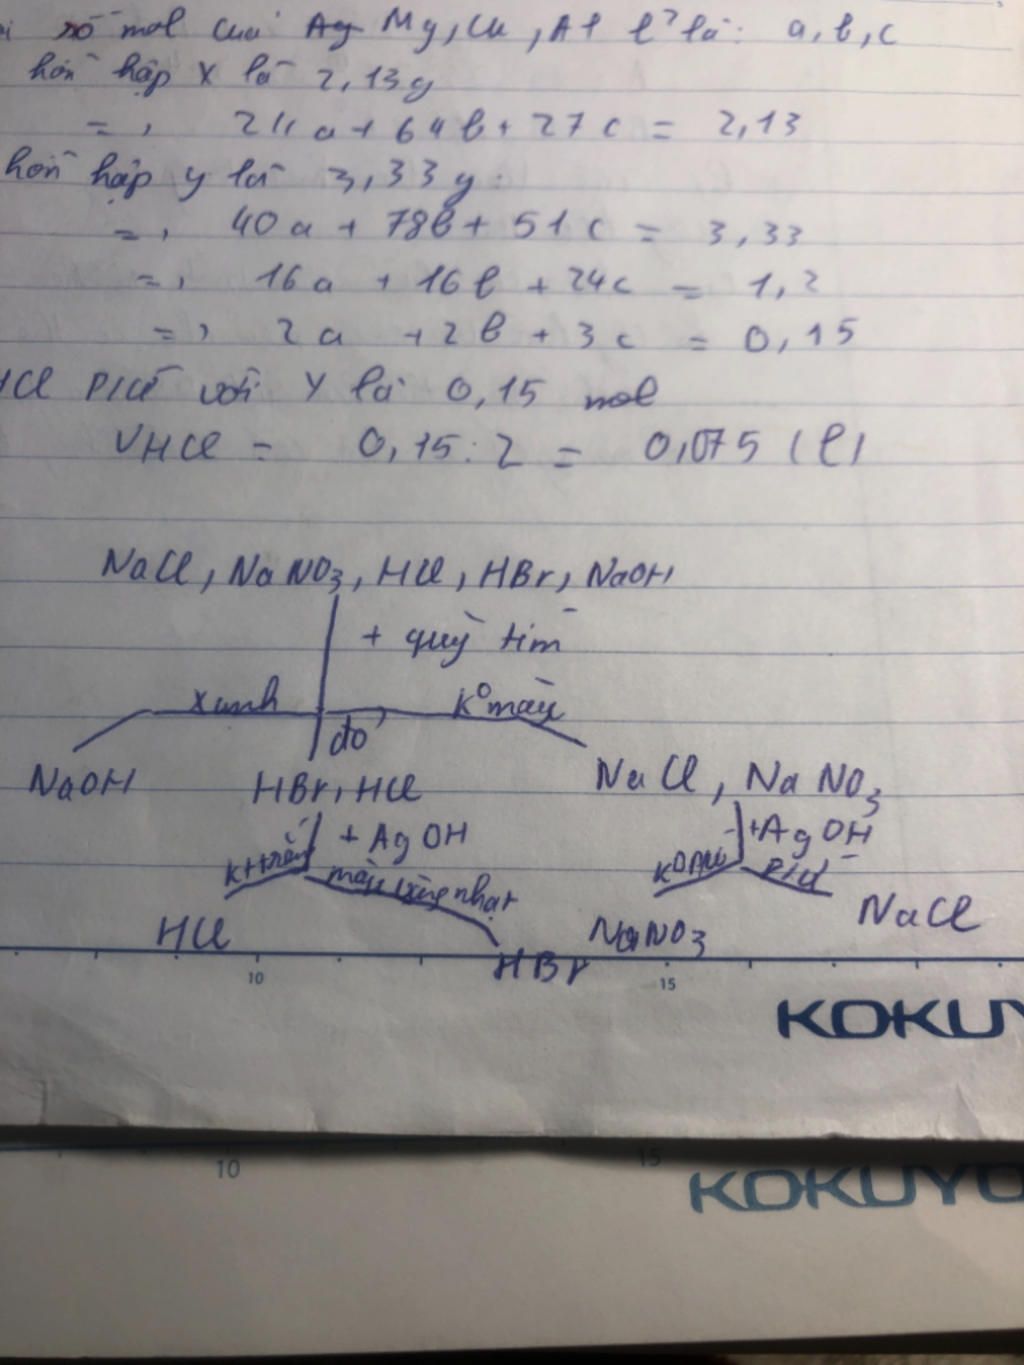 số mol của Mg, Cu, Al l² là: a, b, c
hỗn hợp X là 2,13g
=> 24a + 64b + 27c = 2,13
hỗn hợp y là 3,33g.
=> 40a + 78b + 51c = 3,33
=> 16a + 16b + 24c = 1,2
=> 2a + 2b + 3c = 0,15
HCl PƯ với Y là 0,15 mol
VHCl = 0,15 : 2 = 0,075 (l)
NaCl, NaNO3, HCl, HBr, NaOH
+ quỳ tím
xanh
đỏ
K° màu
NaOH
HBr, HCl
NaCl, NaNO3
+ AgOH
+ AgOH
màu vàng nhạt
HCl
HBr
NaNO3
NaCl
10
15
KOKUY
10
15
KOKUYO